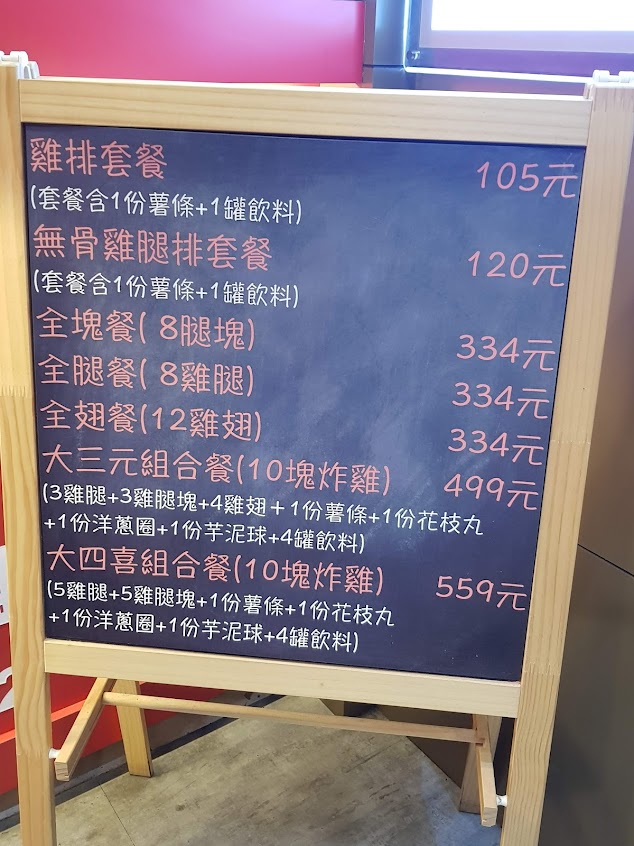 雞排套餐 105元
(套餐含1份薯條+1罐飲料)
無骨雞腿排套餐 120元
(套餐含1份薯條+1罐飲料)
全塊餐( 8腿塊) 334元
全腿餐( 8雞腿) 334元
全翅餐(12雞翅) 334元
大三元組合餐(10塊炸雞) 499元
(3雞腿+3雞腿塊+4雞翅+1份薯條+1份花枝丸
+1份洋蔥圈+1份芋泥球+4罐飲料)
大四喜組合餐(10塊炸雞) 559元
(5雞腿+5雞腿塊+1份薯條+1份花枝丸
+1份洋蔥圈+1份芋泥球+4罐飲料)